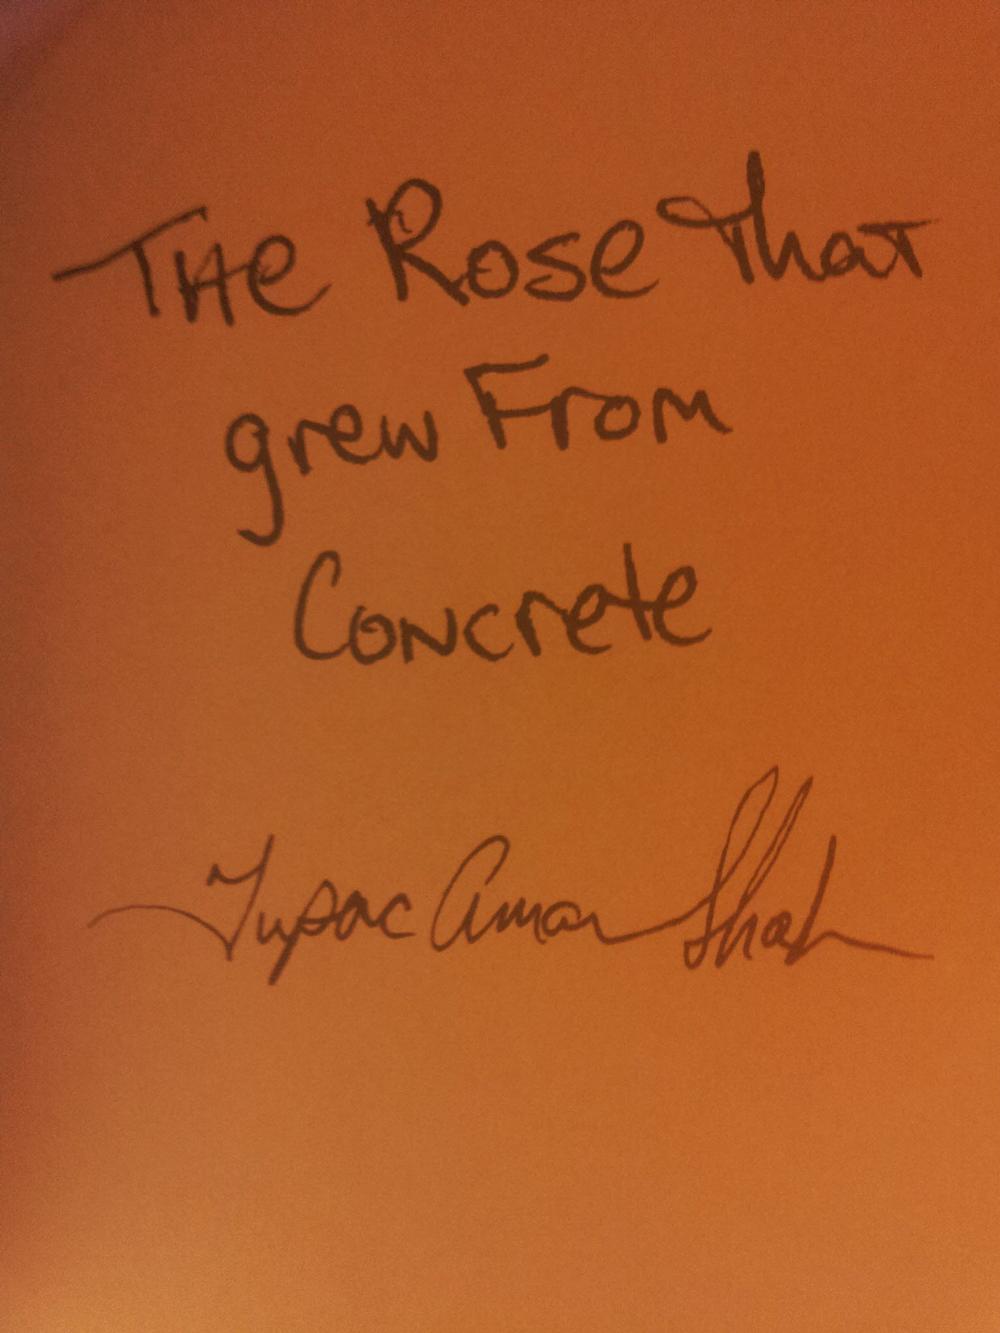 THe Rose That
grew From
Concrete
Tupac Amar Shak